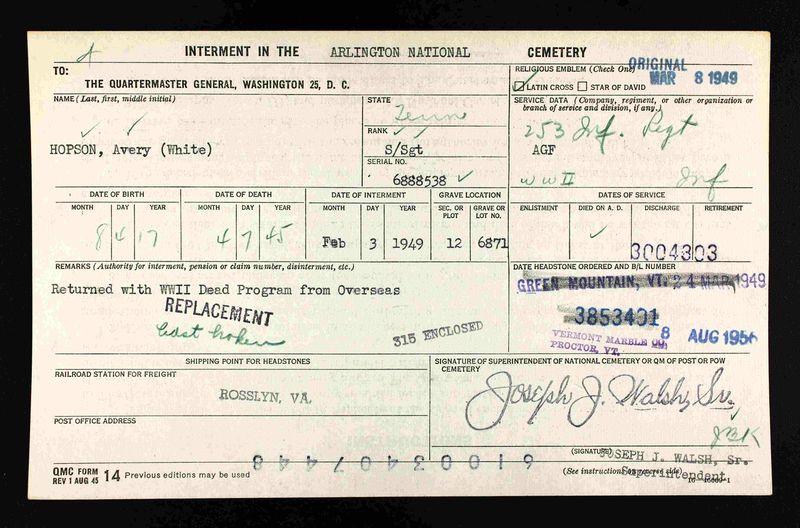 INTERMENT IN THE ARLINGTON NATIONAL CEMETERY
TO:
THE QUARTERMASTER GENERAL, WASHINGTON 25, D. C.
RELIGIOUS EMBLEM (Check One)
ORIGINAL
MAR 8 1949
LATIN CROSS STAR OF DAVID
NAME (Last, first, middle initial)
HOPSON, Avery (White)
STATE
Tenn
RANK
S/Sgt
SERIAL NO.
6888538
SERVICE DATA (Company, regiment, or other organization or
branch of service and division, if any.)
253 Inf. Regt
AGF
WW II Inf
DATE OF BIRTH
MONTH DAY YEAR
8 4 17
DATE OF DEATH
MONTH DAY YEAR
4 7 45
DATE OF INTERMENT
MONTH DAY YEAR
Feb 3 1949
GRAVE LOCATION
SEC. OR PLOT
GRAVE OR LOT NO.
12 6871
DATES OF SERVICE
ENLISTMENT DIED ON A. D. DISCHARGE RETIREMENT
3004303
REMARKS (Authority for interment, pension or claim number, disinterment, etc.)
Returned with WWII Dead Program from Overseas
REPLACEMENT
315 ENCLOSED
DATE HEADSTONE ORDERED AND B/L NUMBER
GREEN MOUNTAIN, VT. 24 MAR 1949
3853401
VERMONT MARBLE CO.
PROCTOR, VT.
8 AUG 1956
SHIPPING POINT FOR HEADSTONES
RAILROAD STATION FOR FREIGHT
ROSSLYN, VA.
POST OFFICE ADDRESS
SIGNATURE OF SUPERINTENDENT OF NATIONAL CEMETERY OR QM OF POST OR POW
CEMETERY
Joseph J. Walsh, Sr.
JBK
(SIGNATURE)
JOSEPH J. WALSH, Sr.
Superintendent
(See instructions on reverse side)
QMC FORM
REV 1 AUG 45 14 Previous editions may be used
61003407448